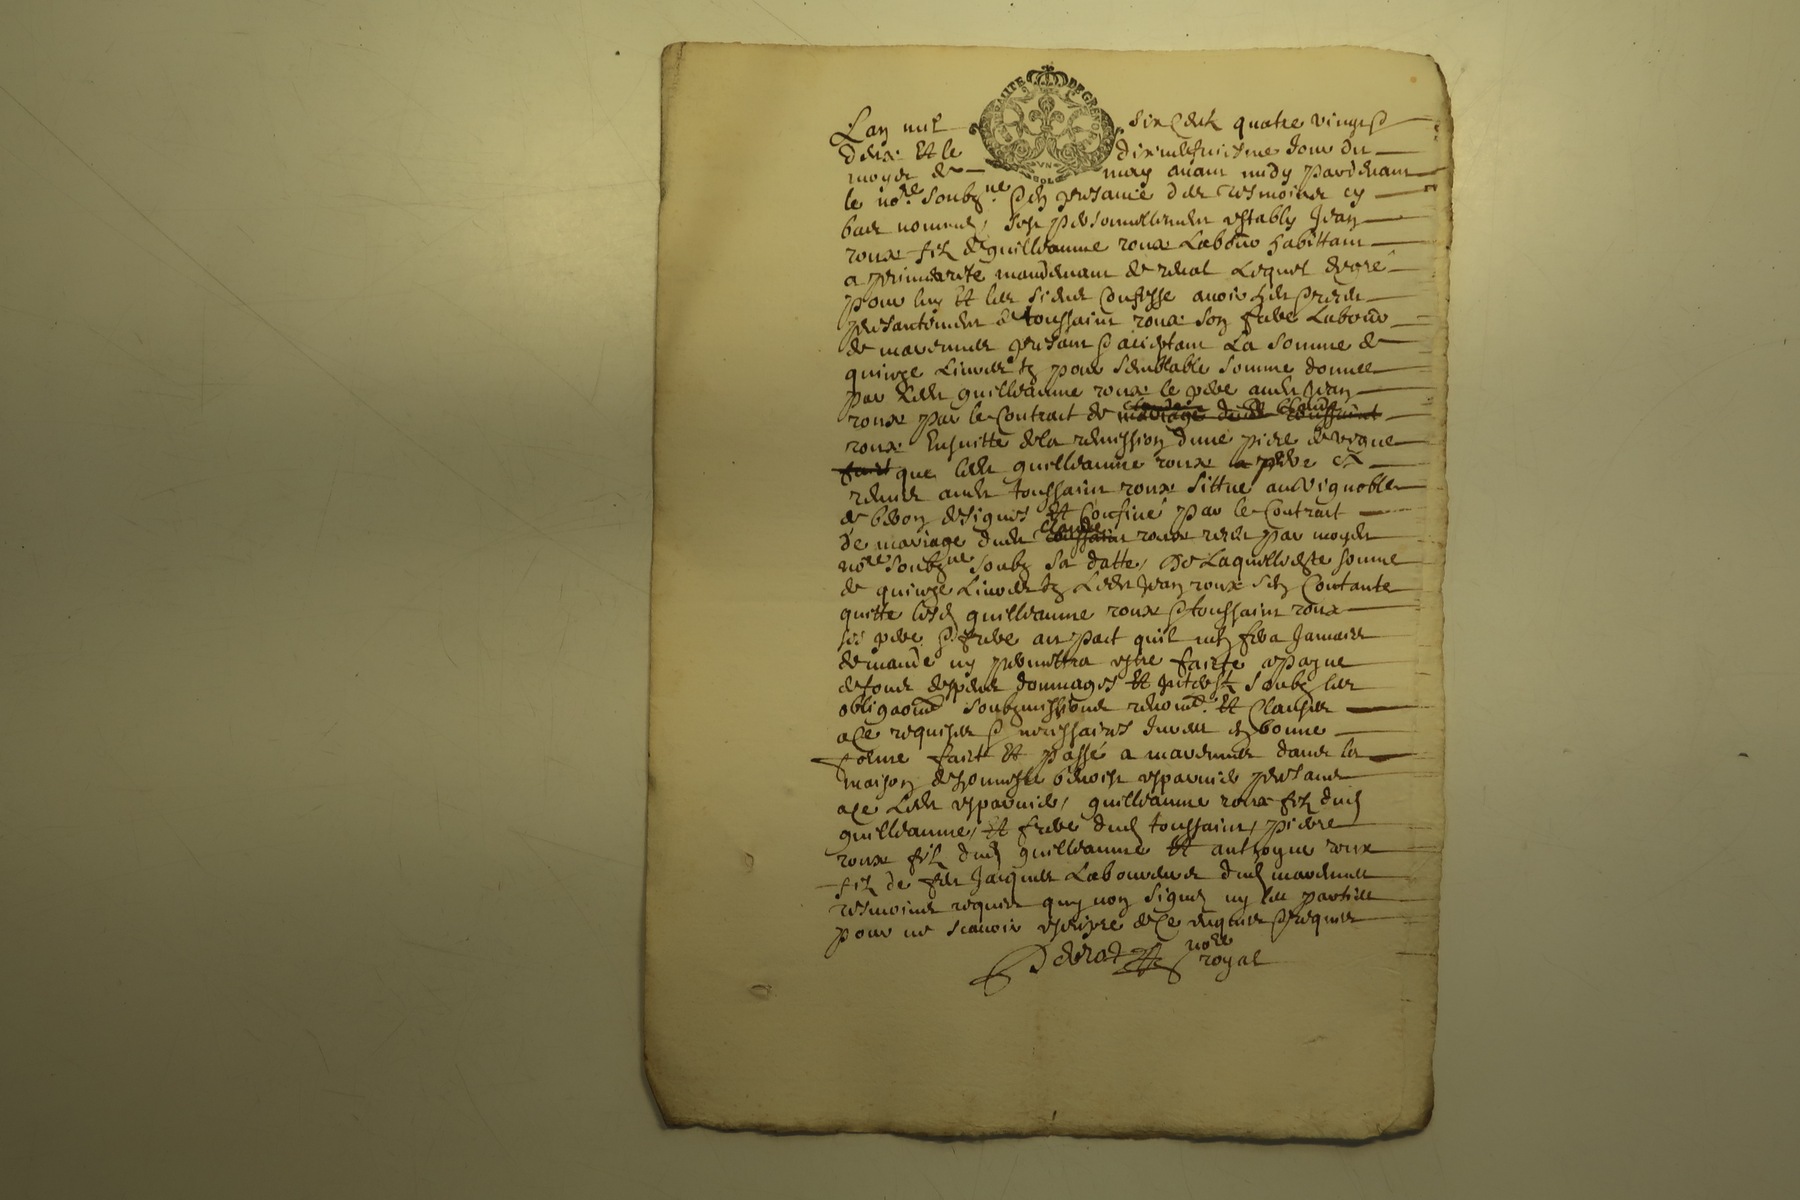 GNALITE DE GRENOBLE
VN SOL
Lan mil six cents quatre vingts
deux et le dixneufuiesme Jour du
moys de may auant midy pardeuant
le no.re soubz.ne & en presance des tesmoins cy
bas nommes, sest personnellement estably Jean
roux filz de guilleaume roux Labour habittant
a mandement de Lequel de gré
pour luy et les siens Confesse auoir heu & receu
presantement de toussainct roux son frere Labour
de presant & aceptant La somme de
quinze Liures tz pour semblable somme donnee
par Ledt guilleaume roux le pere audt Jean
roux par le Contrait de
roux Ensuitte de la remission dune piece de vigne
que ledt guilleaume roux pere a
remis audt toussainct roux sittue au vignoble
de designés et Confiné par le Contrait
de mariage dudt claude roux receu par moydt
no.re soubz.ne soubz sa datte, De Laquelle dste somme
de quinze Liures tz Ledt Jean roux sen Contante
quitte lesd guilleaume roux & toussainct roux
ses pere & frere au pact quil nen fera Jamais
demande ny permettra estre faicte a peyne
de tous despens dommages et Intherestz soubz les
obligaons soubzmissions renon.ons et Clauses
a ce requises & necessaires Jurees en bonne
forme faict et passé a dans la
maison de honneste benoist presans
a ce Ledt guilleaume roux filz dud
guilleaume, et frere dud toussainct, pierre
roux filz dud guilleaume et anthoyne roux
filz de feu Jacques Laboureurs dud
tesmoins requis quy non signés ny les parties
pour ne scauoir escripre de ce enquis & requis
no.re
royal